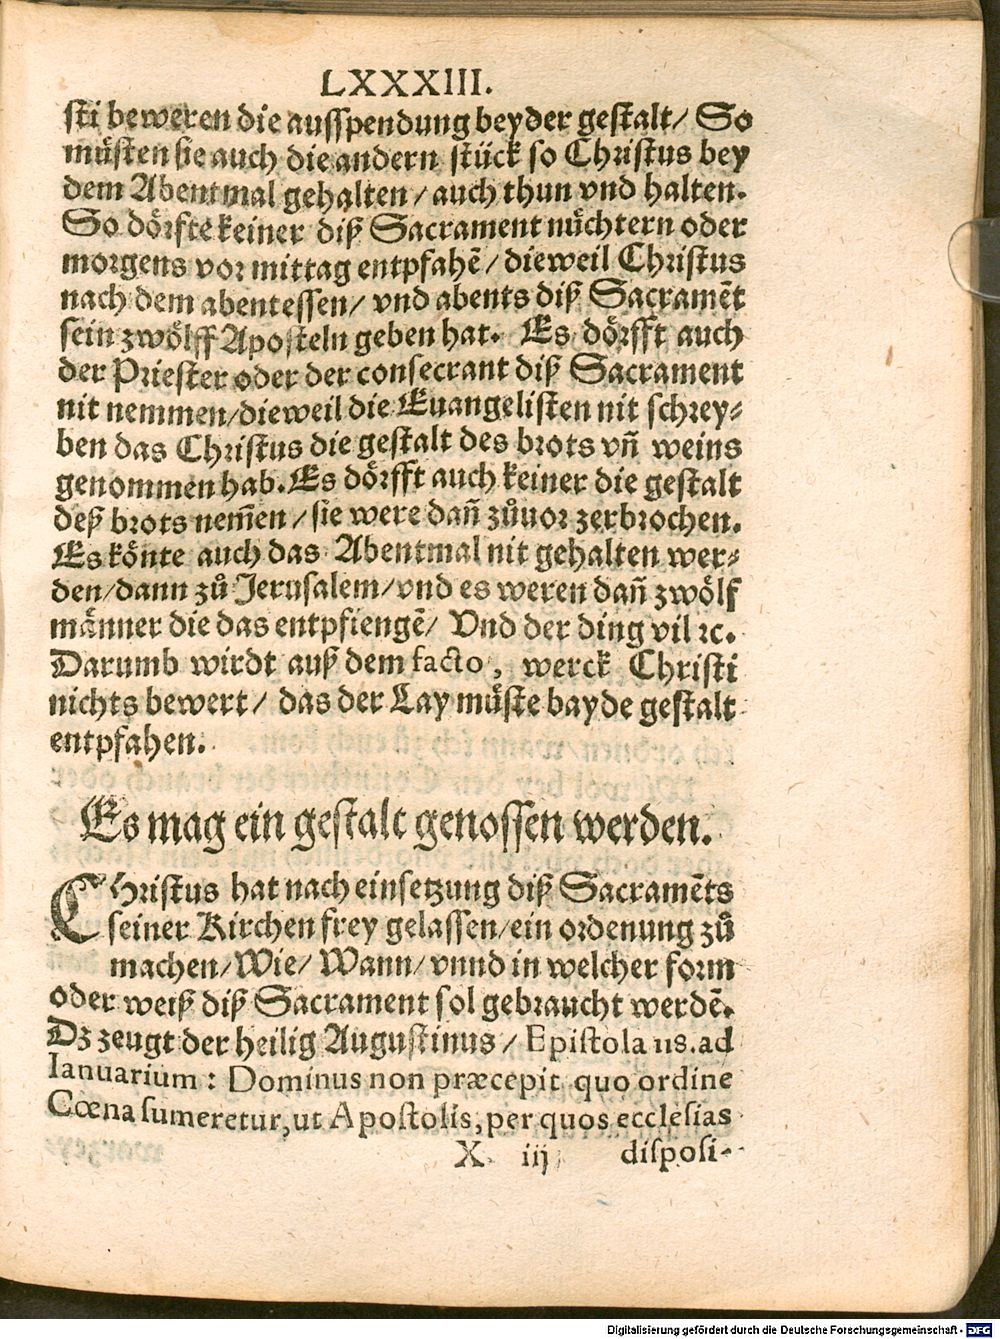 LXXXIII.
sti beweren die ausspendung beyder gestalt/ So
müsten sie auch die andern stück so Christus bey
dem Abentmal gehalten/ auch thun vnd halten.
So dörfte keiner diß Sacrament nüchtern oder
morgens vor mittag entpfahẽ/ dieweil Christus
nach dem abentessen/ vnd abents diß Sacramẽt
sein zwölff Aposteln geben hat. Es dörfft auch
der Priester oder der consecrant diß Sacrament
nit nemmen/dieweil die Euangelisten nit schrey⸗
ben das Christus die gestalt des brots vñ weins
genommen hab. Es dörfft auch keiner die gestalt
deß brots nem̃en/ sie were dañ zůuor zerbrochen.
Es könte auch das Abentmal nit gehalten wer⸗
den/dann zů Jerusalem/vnd es weren dañ zwölf
männer die das entpfiengẽ/ Vnd der ding vil ꝛc.
Darumb wirdt auß dem facto, werck Christi
nichts bewert/ das der Lay müste bayde gestalt
entpfahen.
Es mag ein gestalt genossen werden.
CHristus hat nach einsetzung diß Sacramẽts
seiner Kirchen frey gelassen/ein ordenung zů
machen/Wie/ Wann/ vnnd in welcher form
oder weiß diß Sacrament sol gebraucht werdẽ.
Dz zeugt der heilig Augustinus/ Epistola 118. ad
Ianuarium: Dominus non præcepit quo ordine
Cœna sumeretur, ut Apostolis, per quos ecclesias
X iij disposi-
Digitalisierung gefördert durch die Deutsche Forschungsgemeinschaft - DFG